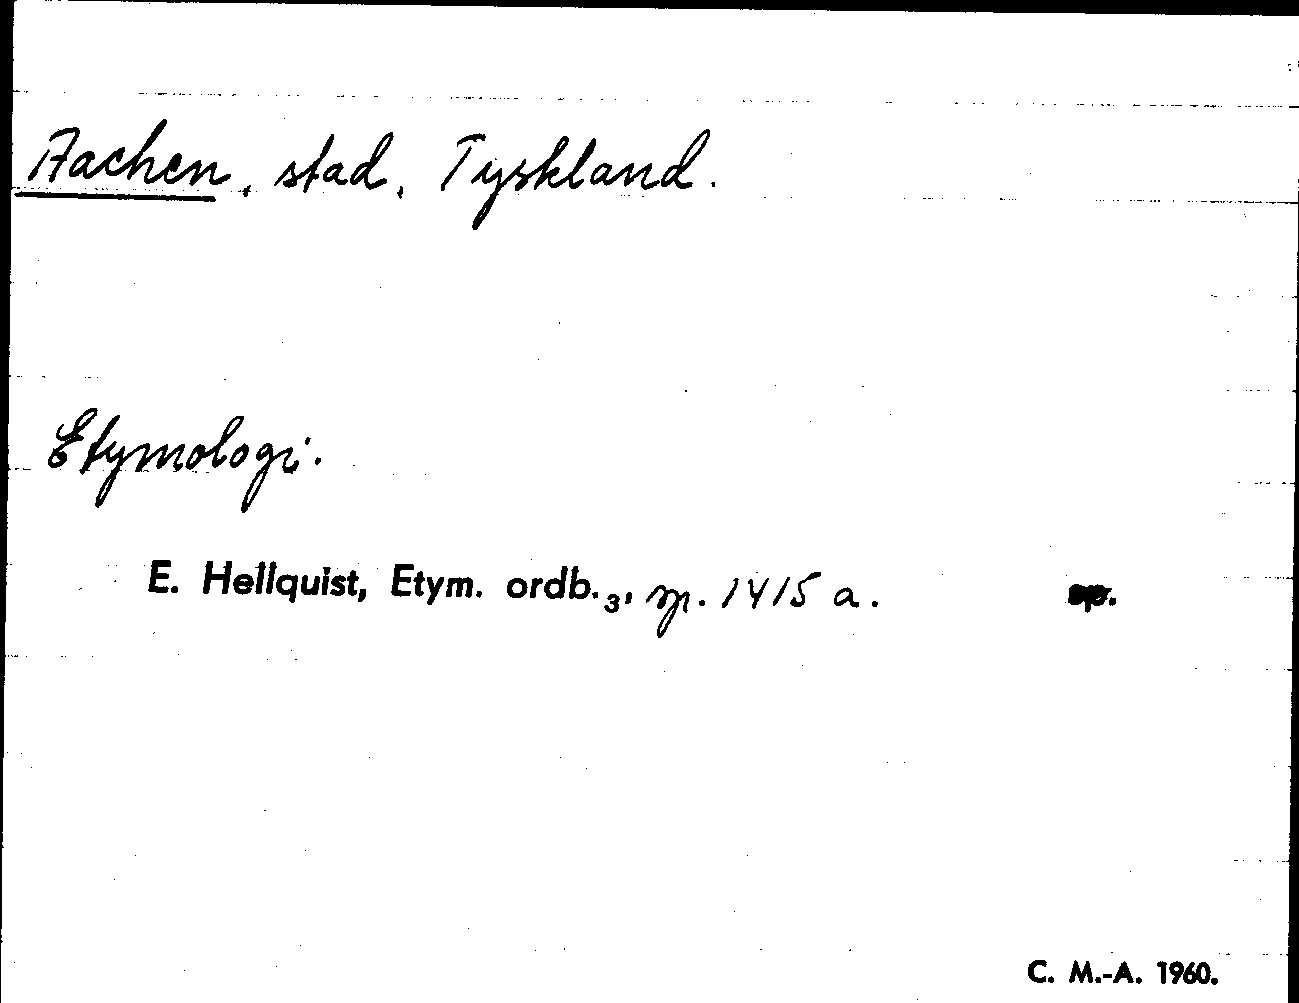 Aachen, stad, Tyskland.
Etymologi.
E. Hellquist, Etym. ordb.₃, sp. 1415 a.
C. M.-A. 1960.